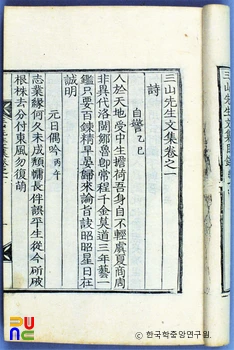 三山先生文集卷之一
詩
自警 乙巳
人於天地受中生擔荷吾身自不輕虞夏商周
非異代洛閩鄒魯卽常程千金莫道三年藝一
鑑只要百鍊精早晏歸來論旨訣昭昭星日在
誠明
元日偶吟 丙午
志業緣何久未成頹慵長伴誤平生從今斫破
根株去分付東風勿復萌
ⓒ 한국학중앙연구원